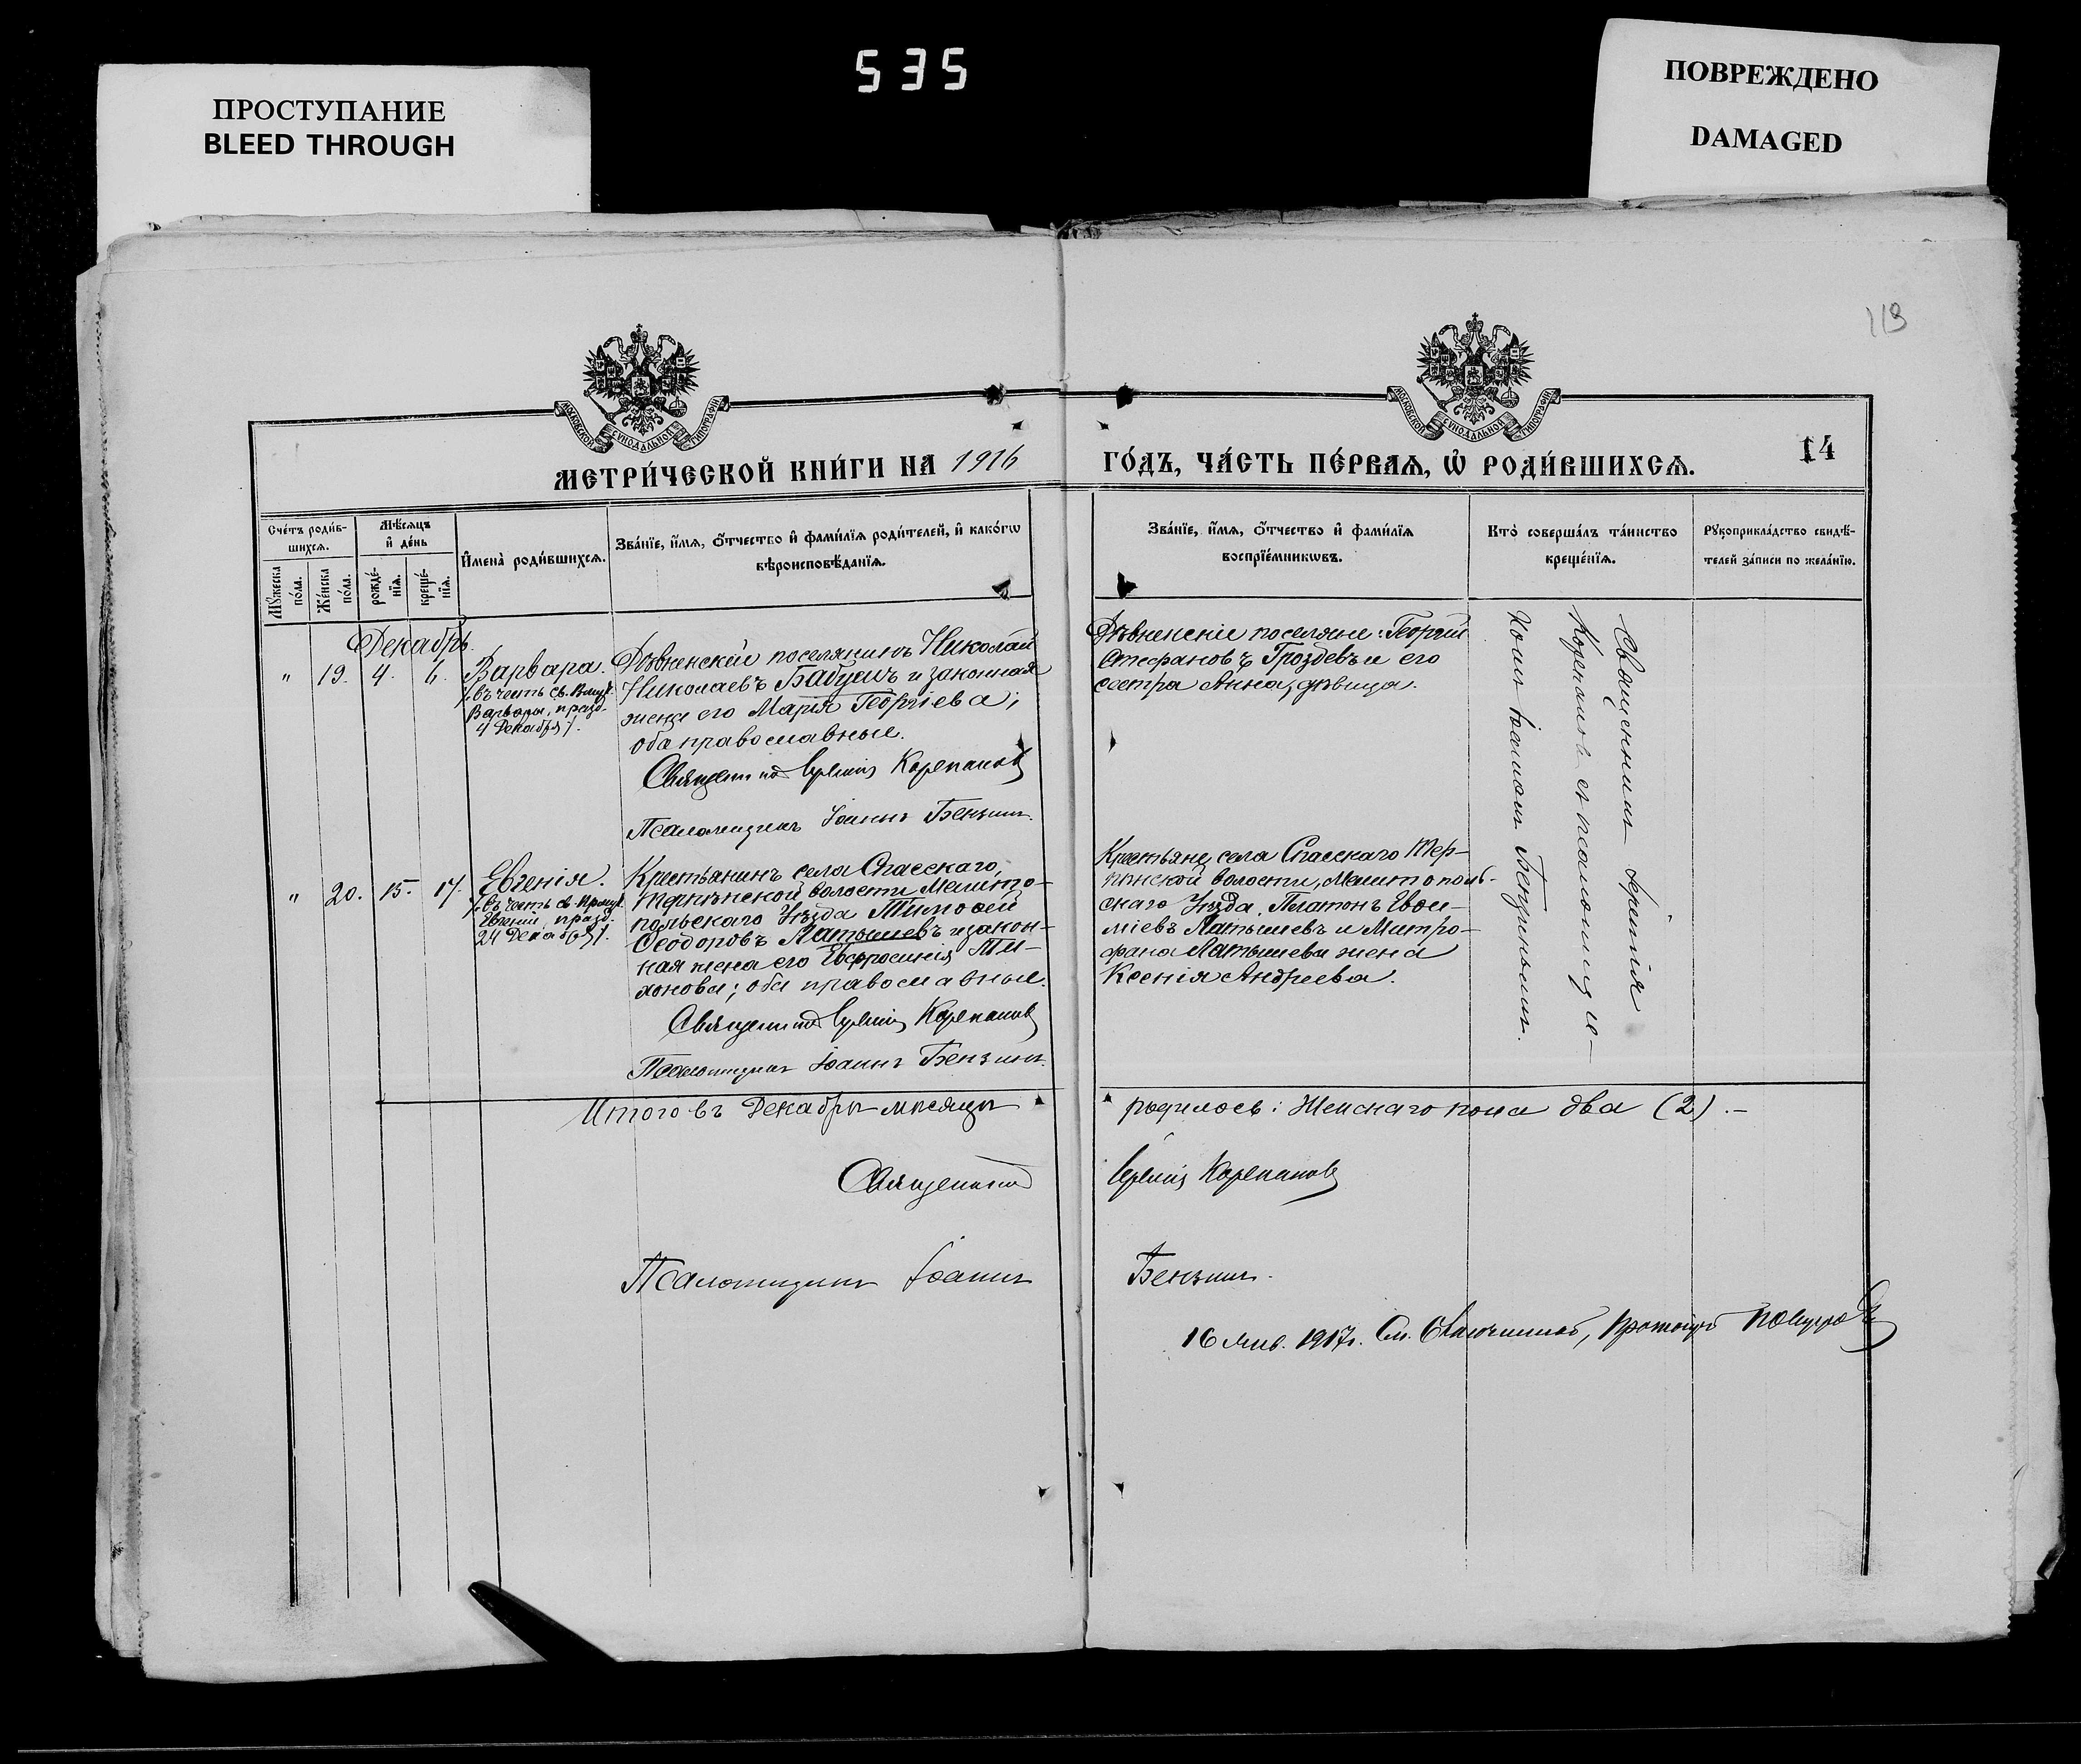 535
ПРОСТУПАНИЕ
BLEED THROUGH
ПОВРЕЖДЕНО
DAMAGED
113
МОСКОВСКОЙ СѴНОДАЛЬНОЙ ТИПОГРАФІИ
МОСКОВСКОЙ СѴНОДАЛЬНОЙ ТИПОГРАФІИ
МЕТРИ́ЧЕСКОЙ КНИ́ГИ НА 1916
ГО́ДЪ, ЧА́СТЬ ПЕ́РВАѦ, Ѡ РОДИ́ВШИХСѦ.
14
Сче́тъ роди́в-
шихсѧ.
Мꙋ́жеска по́ла.
Же́нска по́ла.
Мѣ́сѧцъ и де́нь
рожде́-
нїѧ.
креще́-
нїѧ.
Имена̀ роди́вшихсѧ.
Зва́нїе, и́мѧ, ѻ́тчество и фами́лїѧ роди́телей, и како́гѡ
вѣроисповѣ́данїѧ.
Зва́нїе, и́мѧ, ѻ́тчество и фами́лїѧ
воспрїе́мникѡвъ.
Кто̀ соверша́лъ та́инство
креще́нїѧ.
Рꙋкоприкла́дство свидѣ́-
телей за́писи по жела́нїю.
Декабрь.
" 19. 4. 6. Варвара.
/въ честь св. Влмуч.
Варвары, празд.
4 Декабря/.
Дѣвненскій поселянинъ Николай
Николаевъ Бабуш и законная
жена его Марія Георгіева;
оба православные.
Священникъ Ереміи Корепановъ
Псаломщикъ Іоаннъ Бензинъ.
Дѣвненскіе поселяне: Георгій
Стефановъ Гроздевъ и его
сестра Анна, дѣвица.
Священникъ Іеремія
Корепановъ съ псаломщи-
комъ Іоанномъ Бензинымъ.
" 20. 15. 17. Евгенія.
/въ честь св. Прмуч.
Евгеніи, празд.
24 Декабря/.
Крестьянинъ села Спасскаго,
Терпѣнской волости, Мелито-
польскаго Уѣзда Тимофей
Феодоровъ Латышевъ и закон-
ная жена его Евфросинія Ти-
хонова; оба православные.
Священникъ Ереміи Корепановъ
Псаломщикъ Іоаннъ Бензинъ.
Крестьяне села Спасскаго Тер-
пѣнской волости, Мелитополь-
скаго Уѣзда, Платонъ Евфи-
міевъ Латышевъ и Митро-
фана Латышева жена
Ксенія Андреева.
Итого въ Декабрѣ мѣсяцѣ родилось: Женскаго пола два (2).–
Священникъ Ереміи Корепановъ
Псаломщикъ Іоаннъ Бензинъ.
16 Янв. 1917г. См. Благочинный, Протоіерей